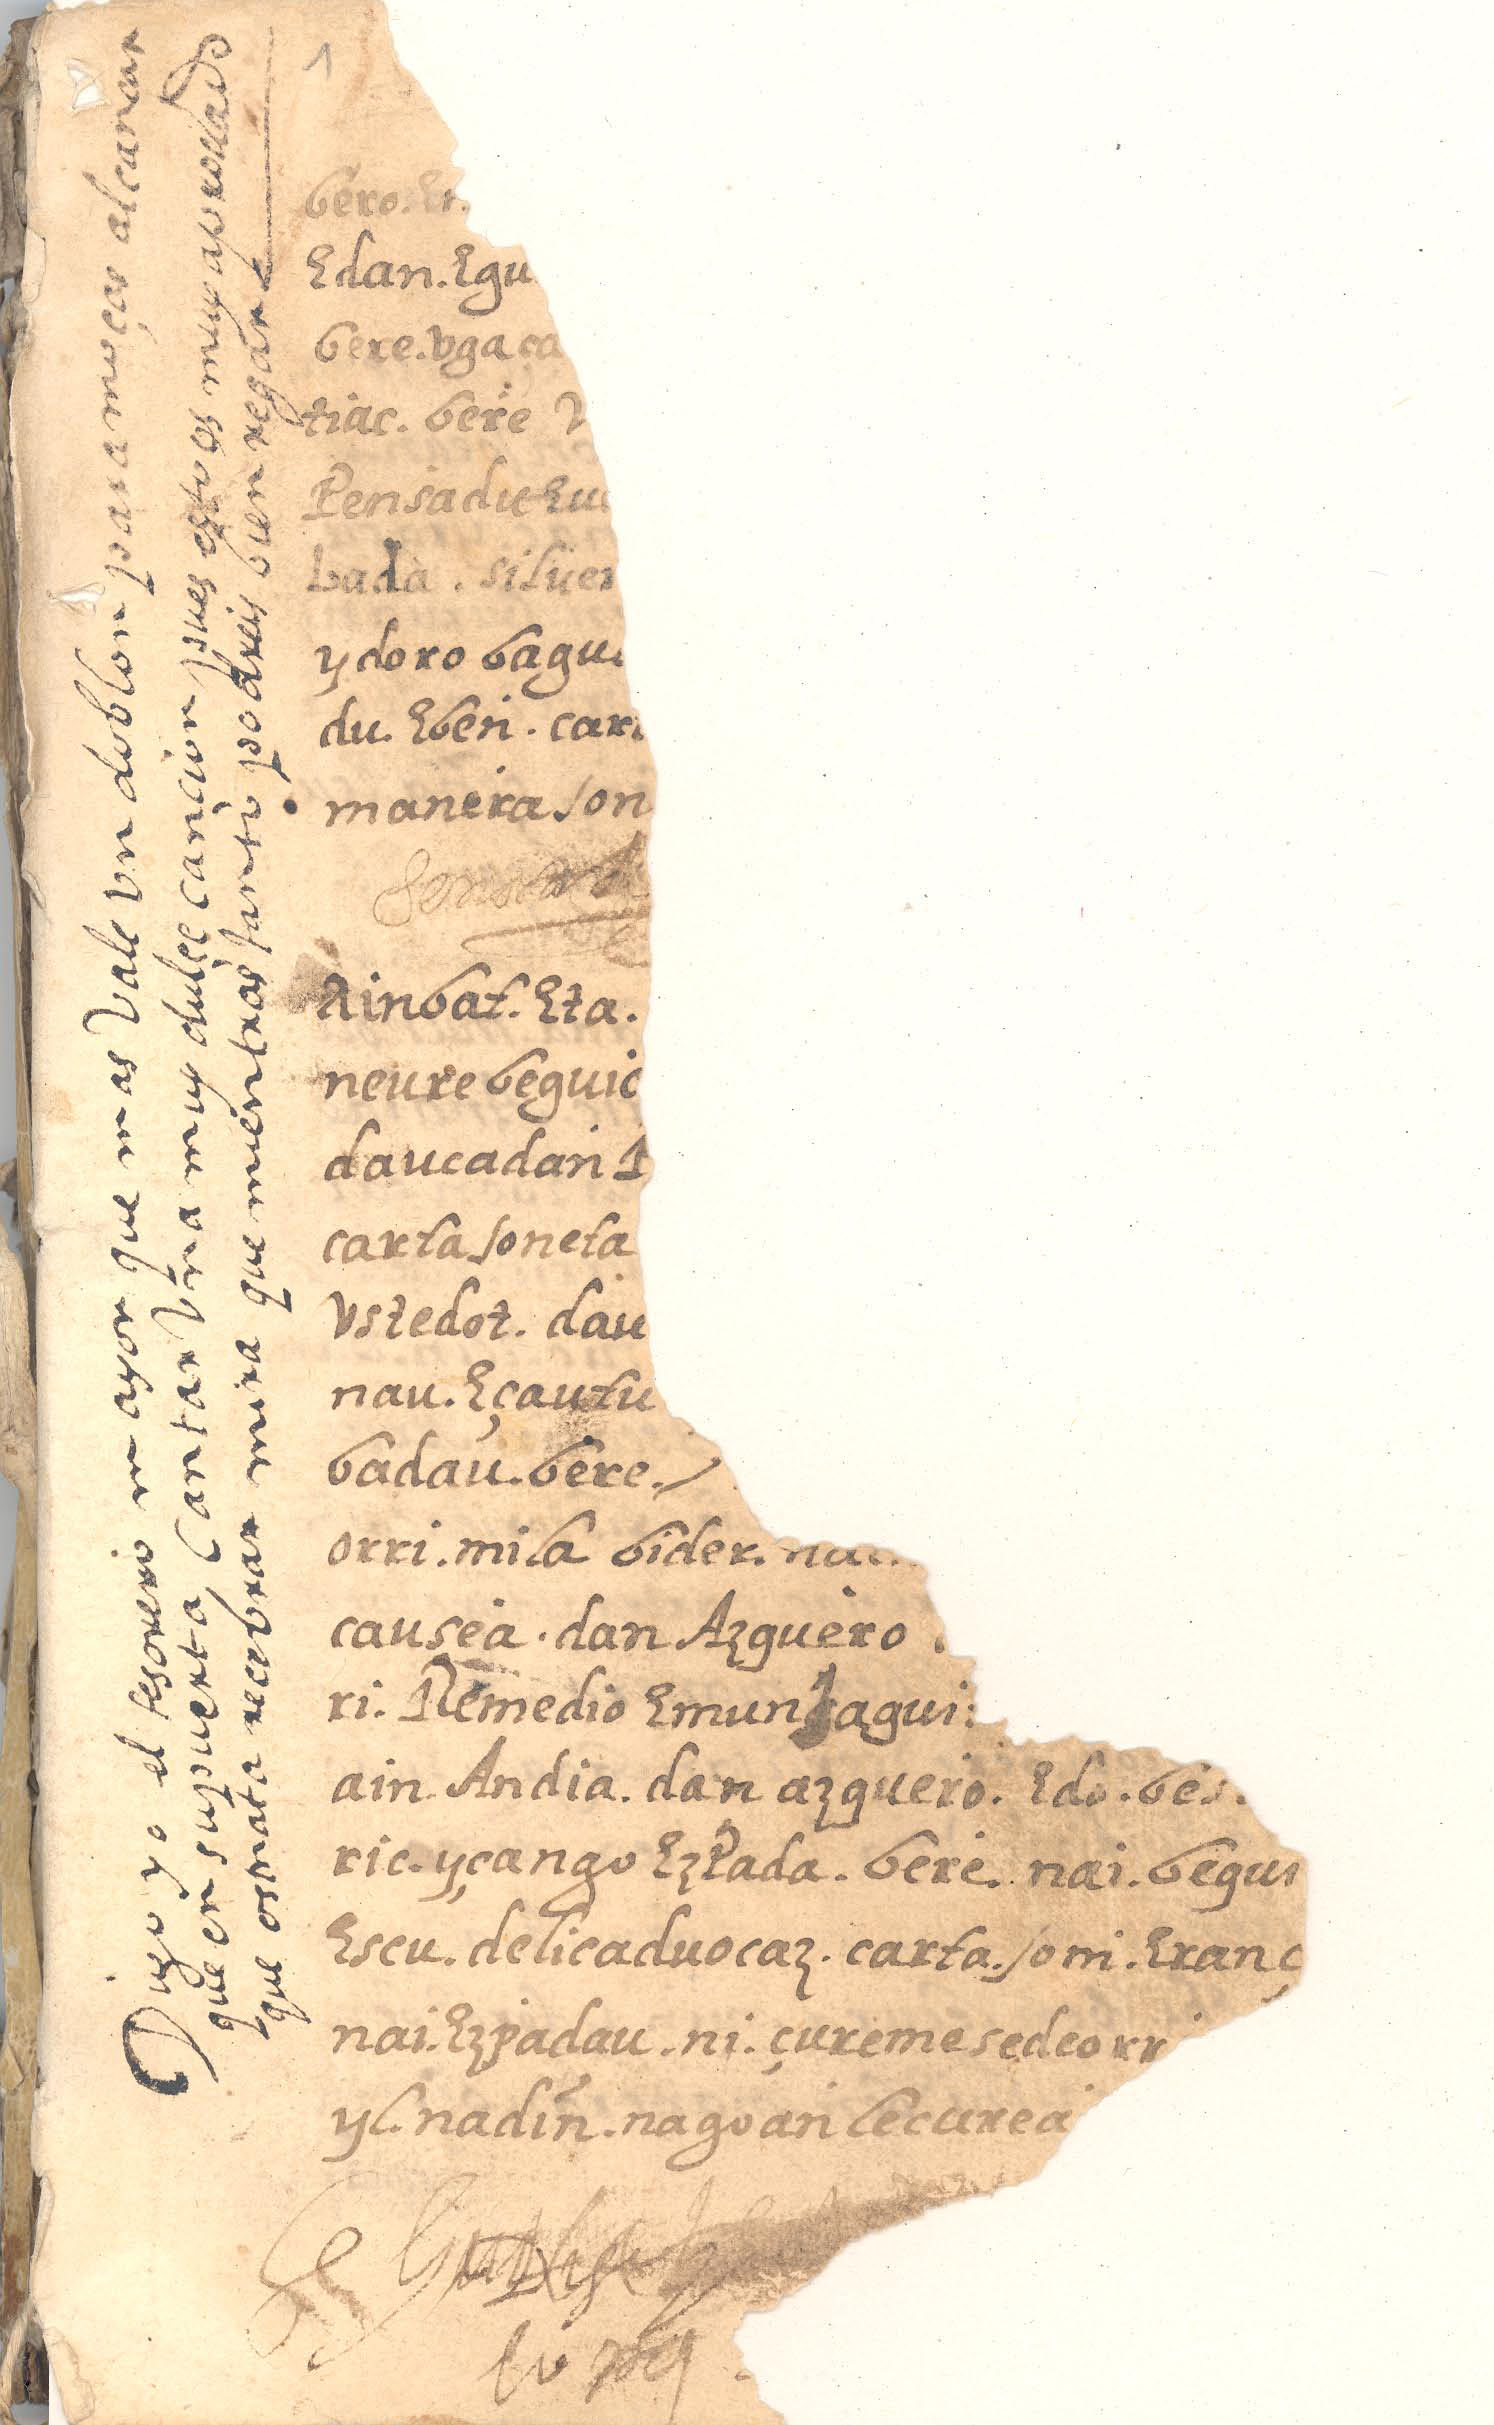 1
Digo yo el tesorerio mayor que mas vale un doblon para moças alcançar
que en su puerta Cantar Vna muy dulce cancion pues esto es muy aprouado
que osnata recebrar mira que mientras tanto podreis bien regar
bero. Er.
Edan. Egu
bere. vga ca
tiac. bere
Pensadu Eu
bada. siluer
ydoro bagu
du. Eben. car
manera son
Ainbat. Eta.
neure beguic
daucadan
carta soneta
Vstedot. dau
nau. Eçautu
badau. bere.
orri. mila bider.
causea. dan Azguero
ri. Remedio Emun agui
ain. Andia. dan azguero. Edo. bes.
ric. yçango Ezpada. bere. nai. begui
Escu. delicaduocaz. carta. soni. Eranç
nai. Ezpadau. ni. çuremesedeorr
yl. nadin. nagoan lecurea